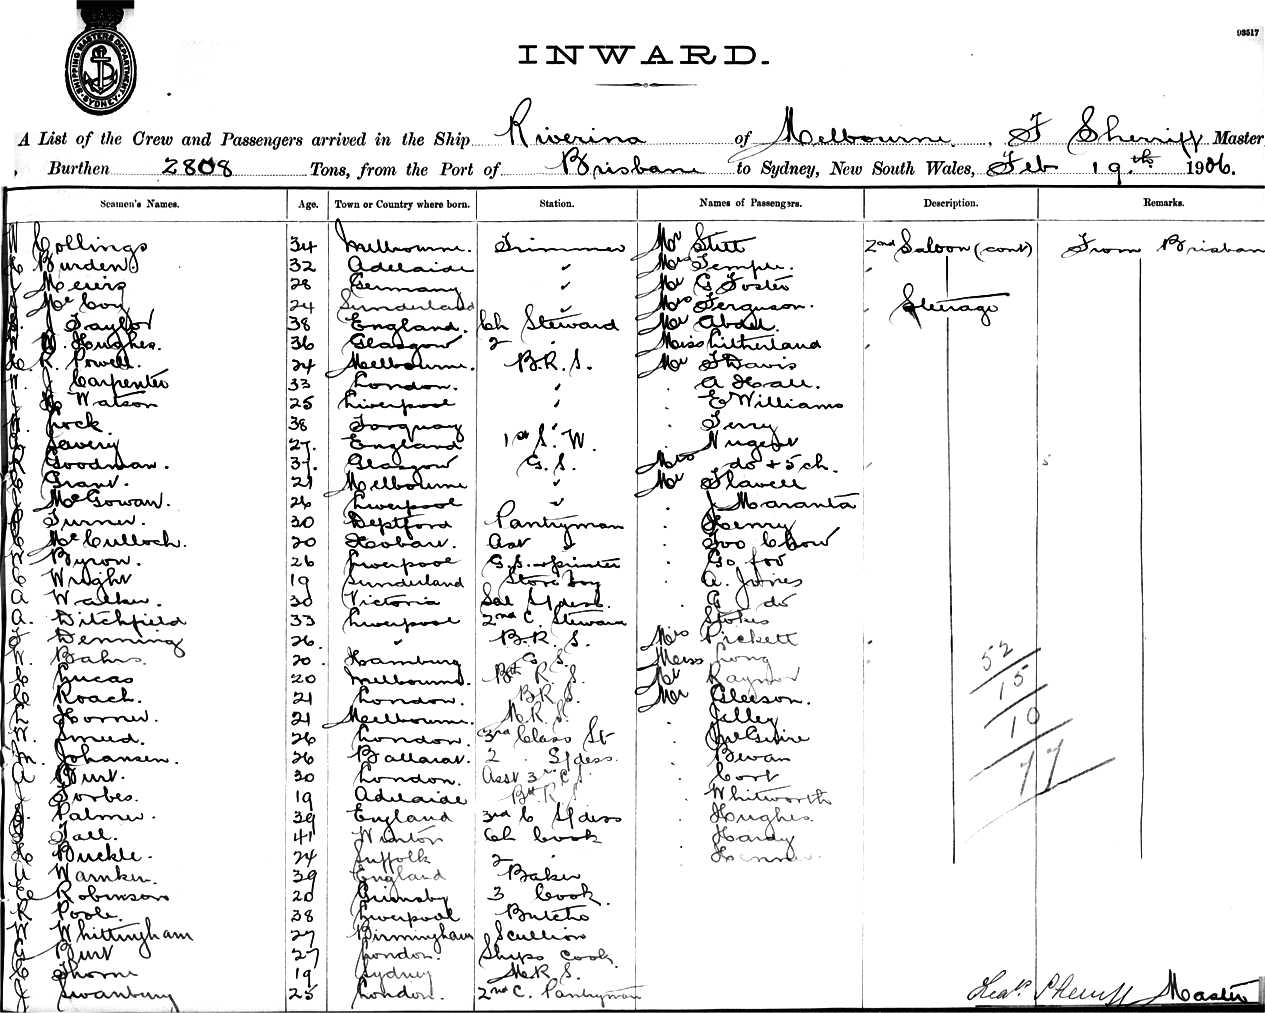 SHIPPING MASTERS DEPARTMENT SYDNEY
93517
INWARD.
A List of the Crew and Passengers arrived in the Ship Riverina of Melbourne, Sherriff Master
Burthen 2808 Tons, from the Port of Brisbane to Sydney, New South Wales, Feb 19th 1906.
Seamen's Names. Age. Town or Country where born. Station. Names of Passengers. Description. Remarks.
Collings 34 Melbourne. Trimmer Mr Stitt 2nd Saloon (cont) From Brisban
Burden 32 Adelaide " Mrs Temple.
Meurs 28 Germany " Mr G Foster
McCoy 24 Sunderland " Mrs Ferguson. Steerage
J Taylor 38 England. Ch Steward Mr Abdel.
W. Hughes. 36 Glasgow 2 " Miss Litherland
R. Powell. 24 Melbourne. B.R.S. Mr J Davis
J Carpenter 33 London. " A Hall.
Watson 25 Liverpool " E Williams
Jock. 38 Torquay " Terry
Savery 27. England 1st S.W. Nugent
Goodman. 37. Glasgow G.S. Mrs do + 5 ch.
Grant. 21 Melbourne " Mr Flavell
McGowan. 26 Liverpool " J Maranta
Turner. 30 Deptford Pantryman Henry
McCulloch. 20 Hobart. Ast " Foo Chow
Byron. 26 Liverpool G.S. + printer Go foo
Wright 19 Sunderland Store boy A. Jones
A Walker. 30 Victoria Sal Stdess. do
A. Ditchfield 33 Liverpool 2nd C. Steward Stokes
Denning 26. " B.R.S. Mrs Pickett
Bahrs. 20. Hamburg G.S. Miss Long
Lucas 20 Melbourne. Bth R.S. Mr Raynor
Roach. 21 London. B.R.S. Mr Gleeson. 52
Horner. 21 Melbourne. M.R.S. Jilley 15
W. Smed. 26 London. 3rd Class St McGuire 10
M. Johansen. 26 Ballarat. 2 " Stdess. Bevan 77
A Burt. 30 London. Asst 3rd C S. Cort
Forbes. 19 Adelaide Bth R S Whitworth
Palmer. 39 England 3rd C Stdess Hughes.
Tall. 41 Winton Ch Cook Hardy
Buckle. 24 Suffolk 2 "
Warnken. 39 England Baker
Robinson 20 Grimsby 3 Cook.
R Poole. 38 Liverpool Butcher
W Whittingham 27 Birmingham Scullion
Burt 27 London. Ships Cook.
Thorne 19 Sydney M.R.S.
J Swanbury 25 London. 2nd C. Pantryman Sherriff Master